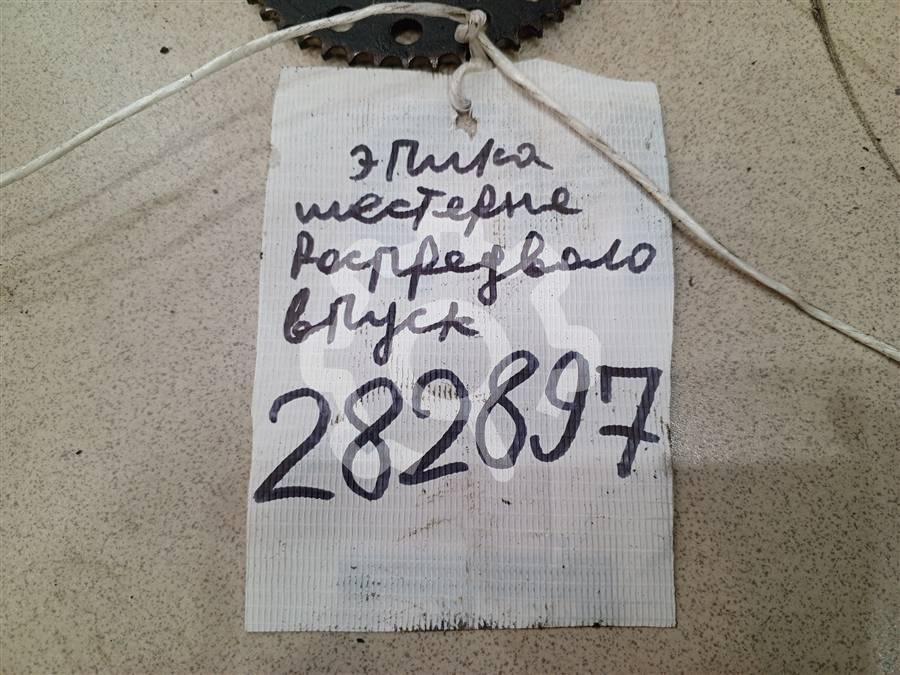 эпика
шестерне
Распредвала
впуск
282897